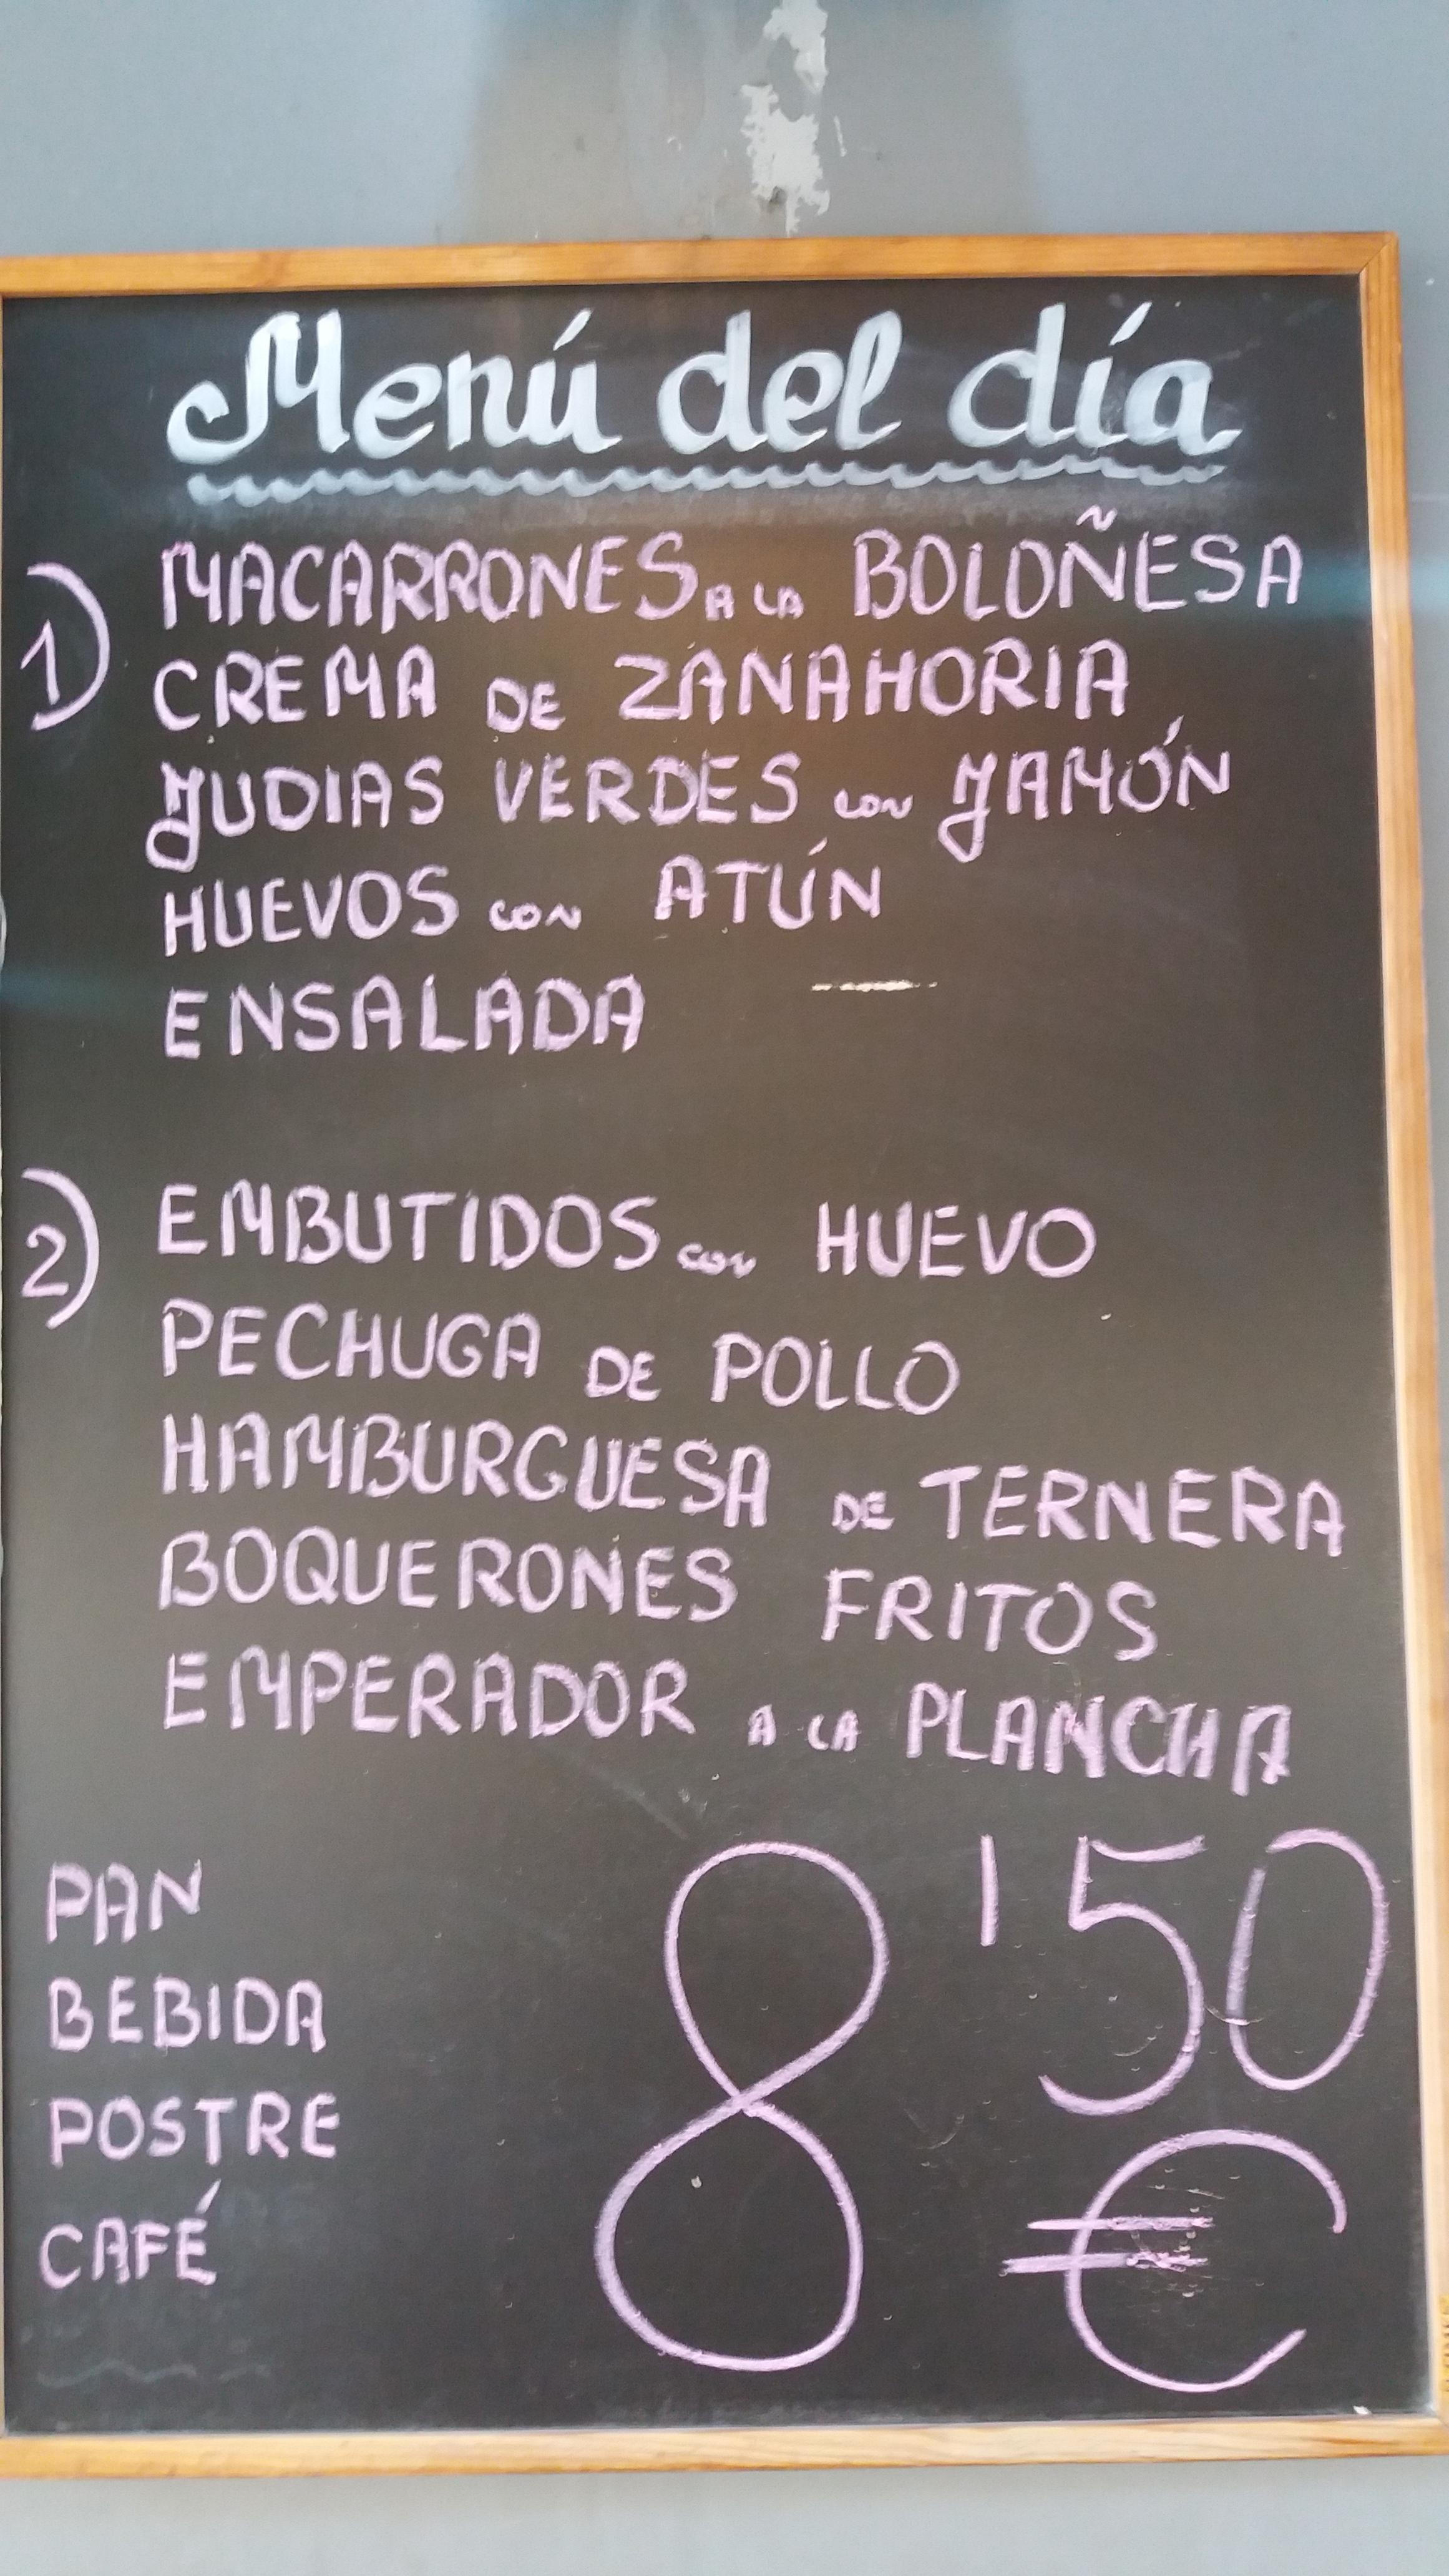 Menú del día
1) MACARRONES A LA BOLOÑESA
CREMA DE ZANAHORIA
JUDIAS VERDES con JAMÓN
HUEVOS con ATÚN
ENSALADA
2) EMBUTIDOS con HUEVO
PECHUGA DE POLLO
HAMBURGUESA DE TERNERA
BOQUERONES FRITOS
EMPERADOR A LA PLANCHA
PAN
BEBIDA
POSTRE
CAFÉ
8'50 €